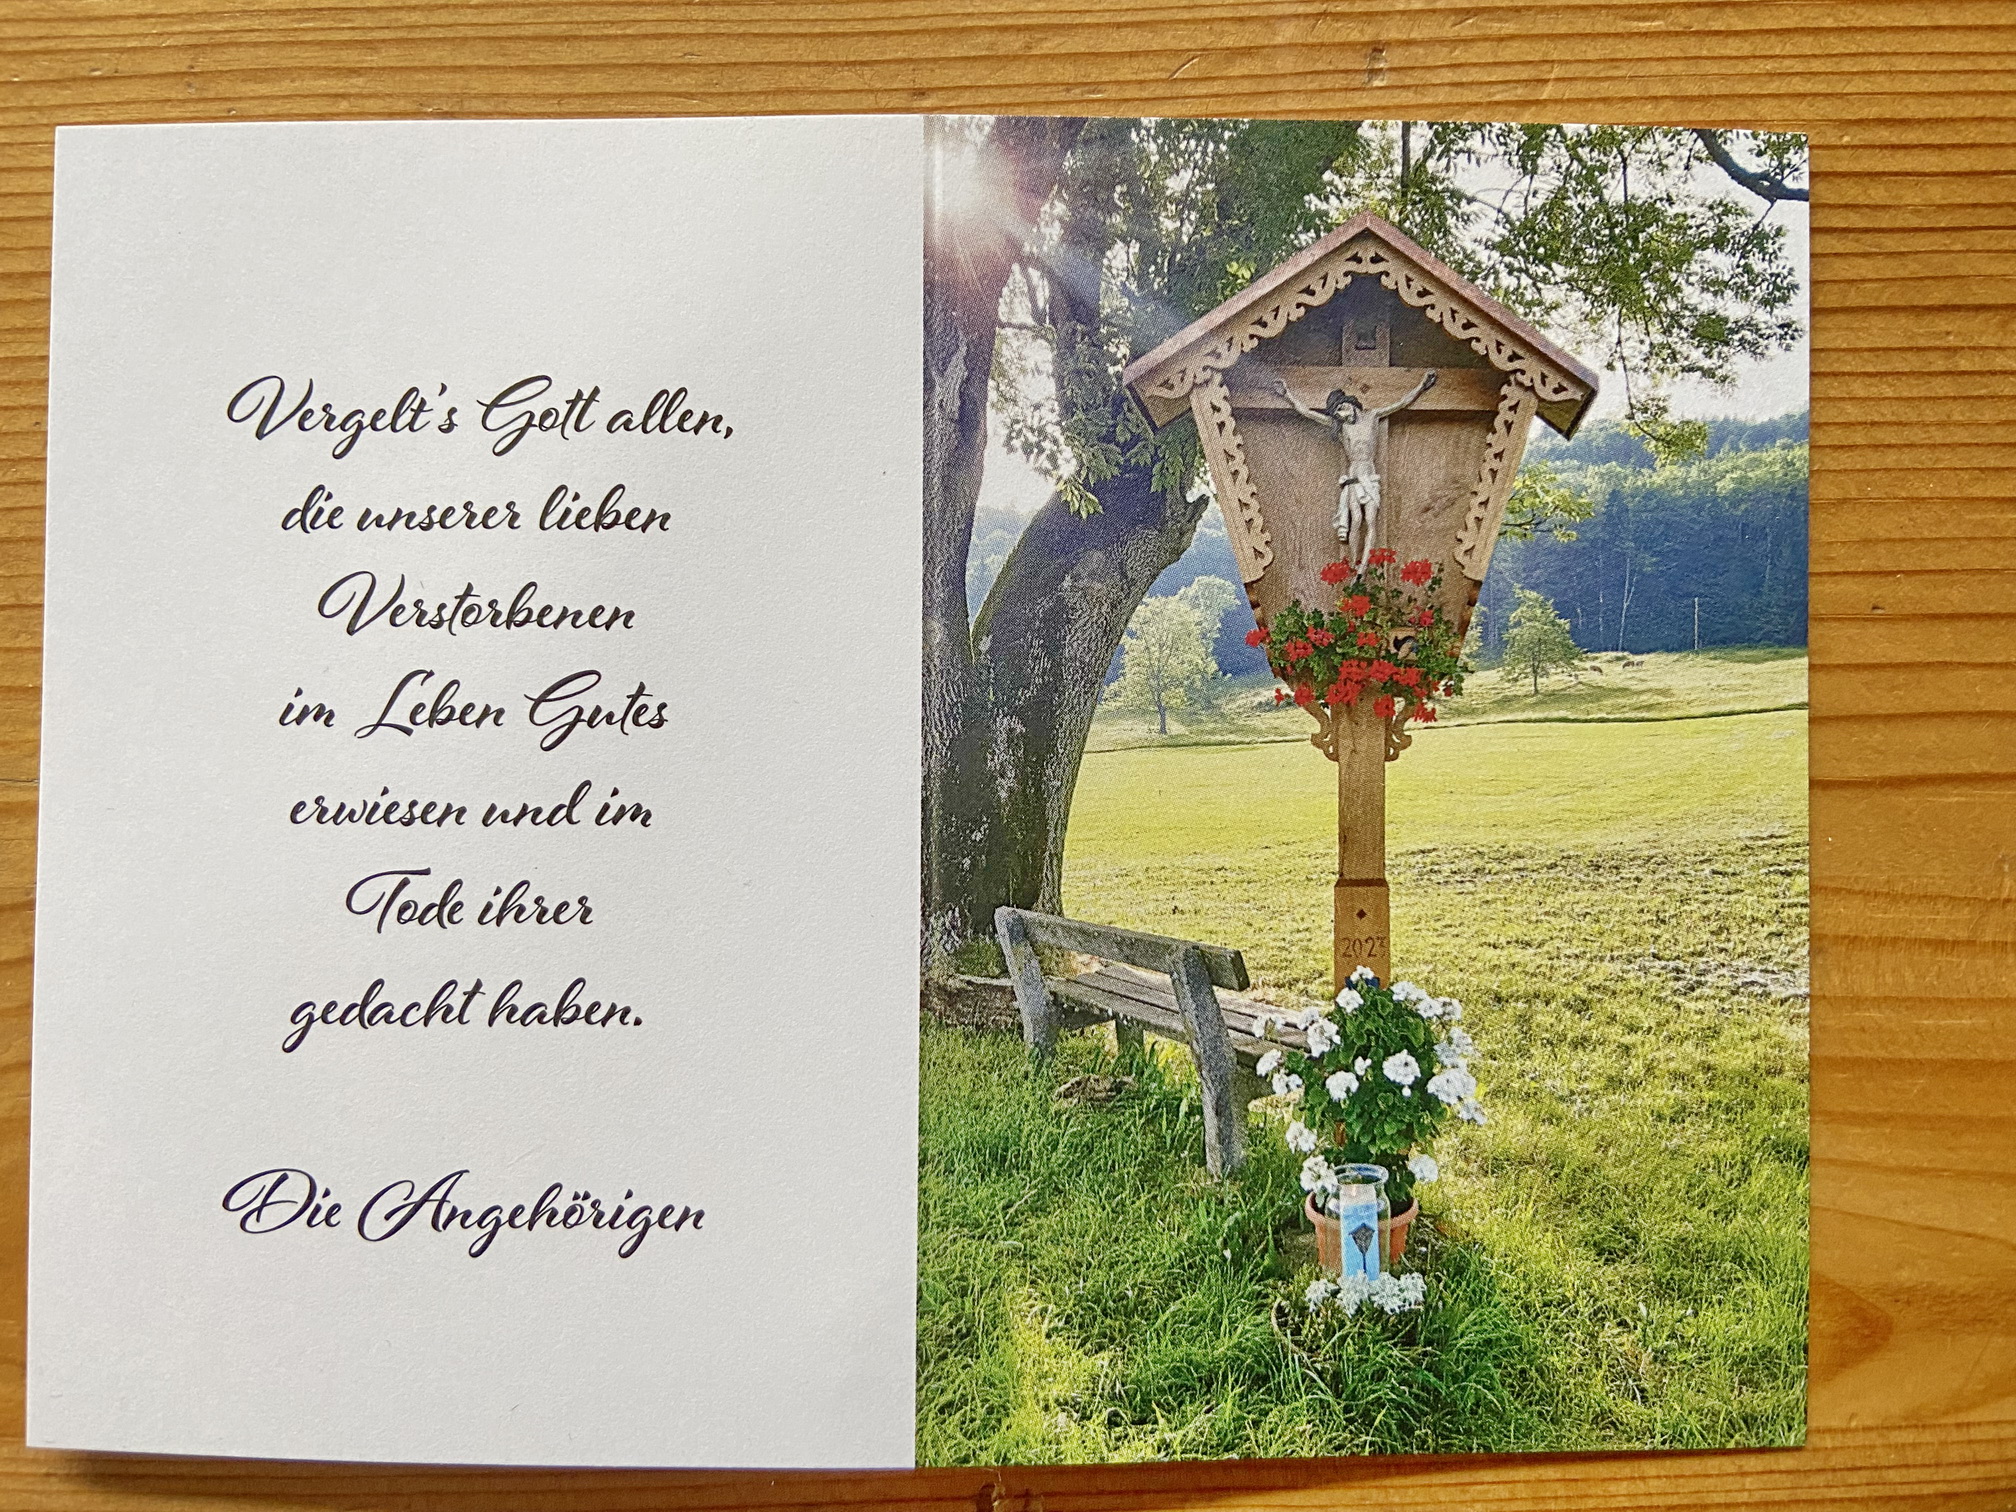 Vergelt's Gott allen,
die unserer lieben
Verstorbenen
im Leben Gutes
erwiesen und im
Tode ihrer
gedacht haben.
Die Angehörigen
2023